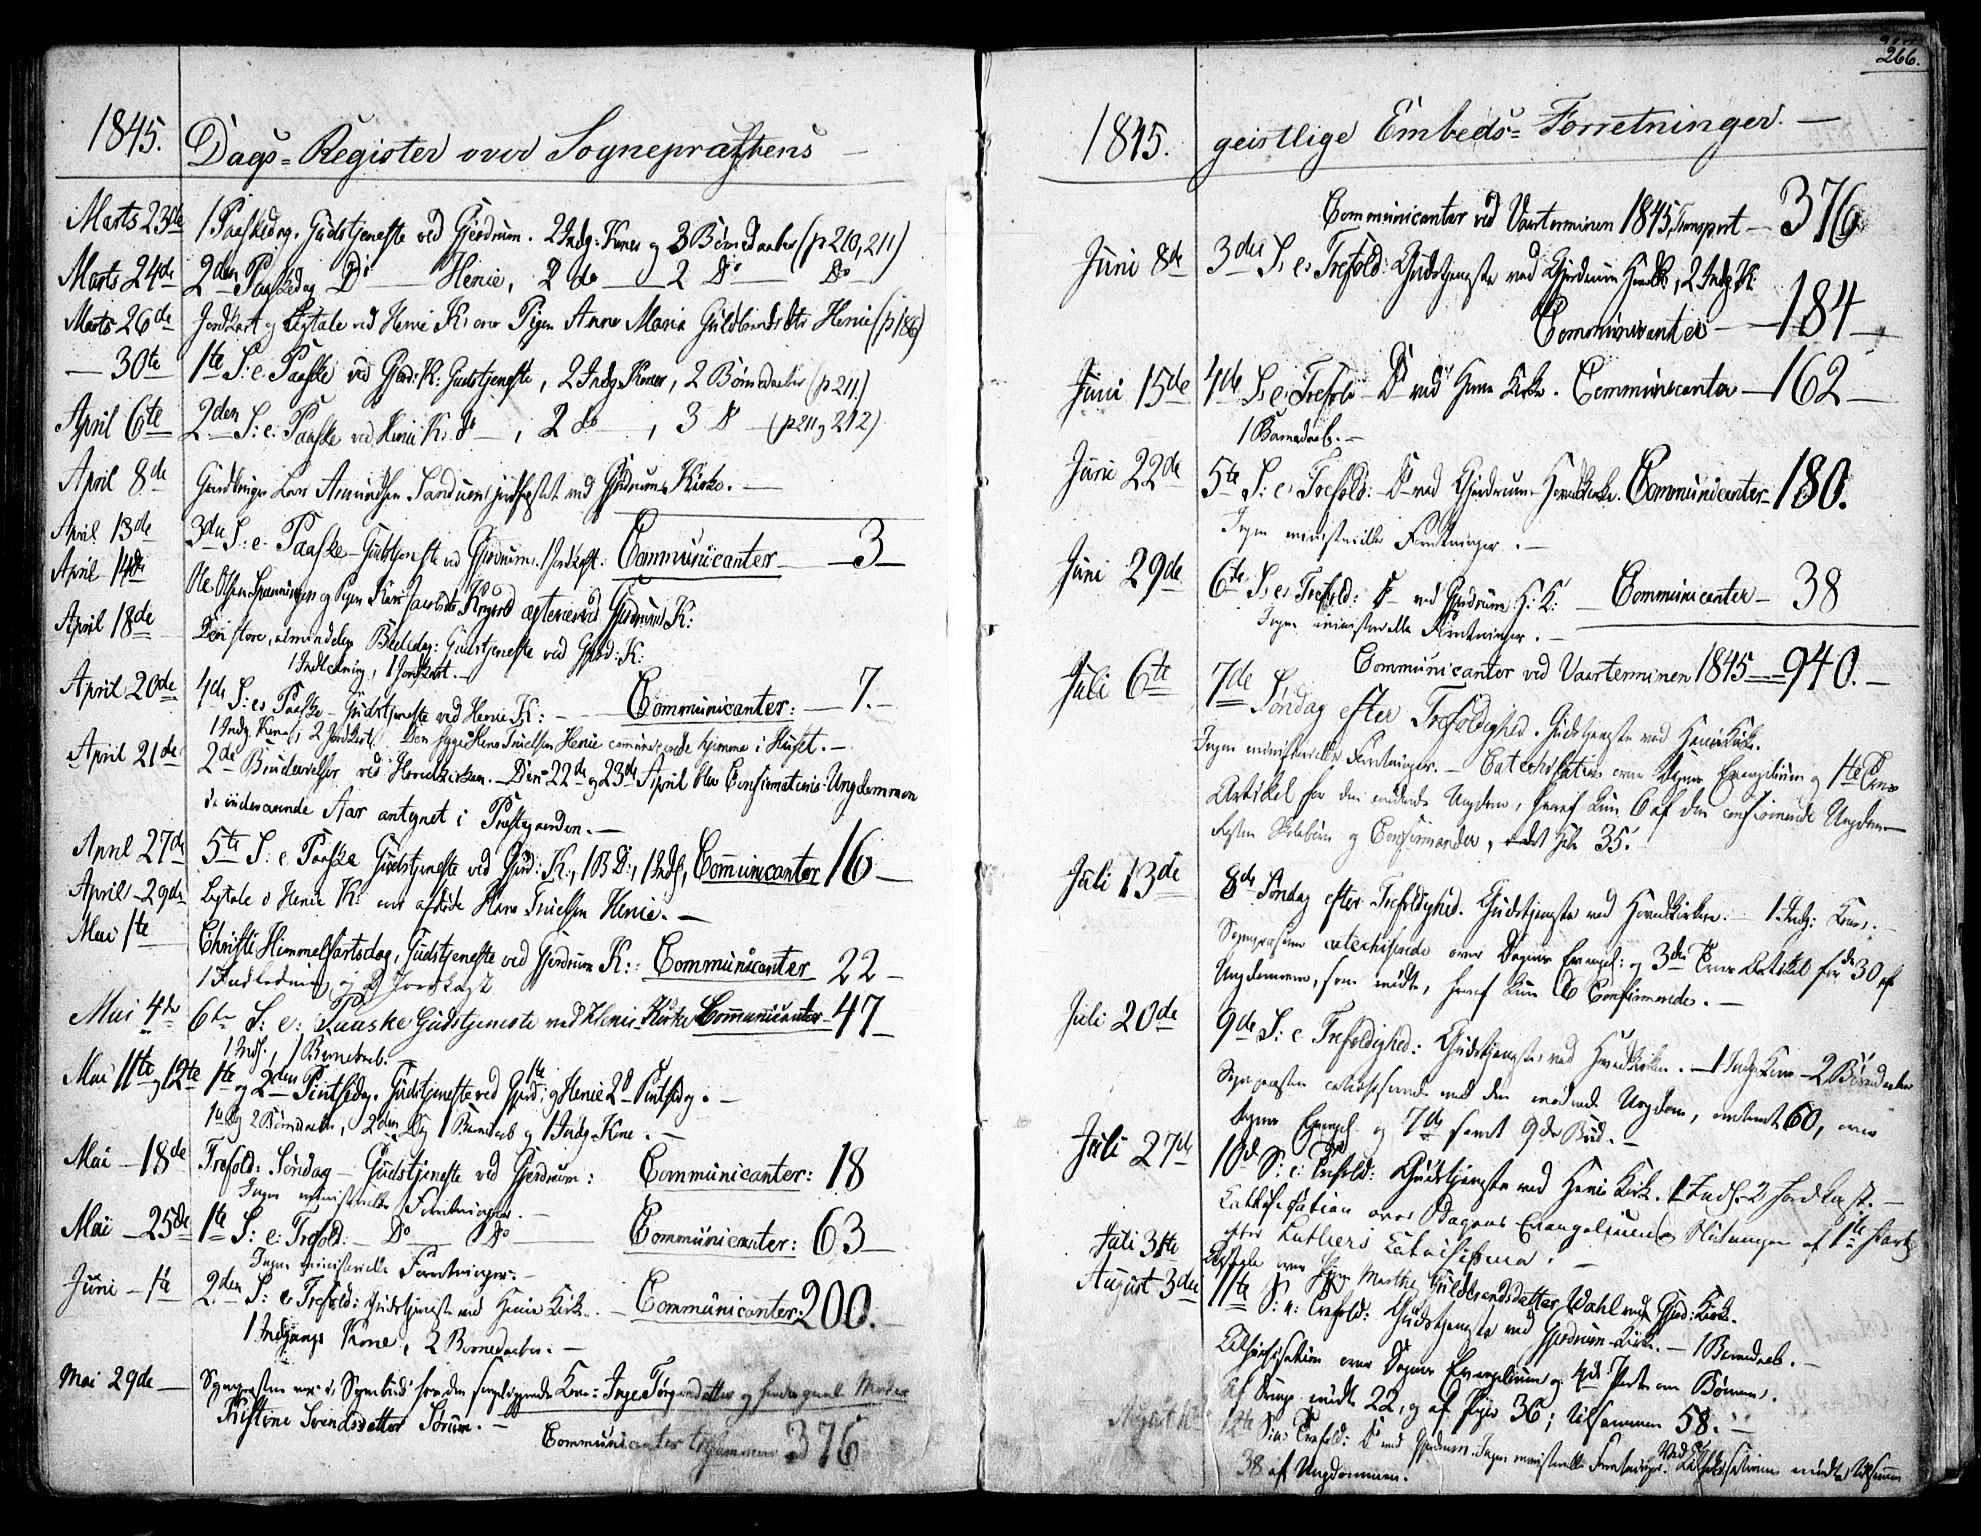 1845.
Dags-Register over Sognepræstens
Marts 23de 1 Paaskedag. Gudstjeneste ved Gjerdrum. 2 Indg: Koner og 3 Børnedaaber (p 210, 211)
Marts 24de 2den Paaskedag Do Henie, 2 do 2 Do Do
Marts 26de Jordkast og Ligtale ved Henie K: over Pigen Anne Maria Guldbrandsdtr Henie (p 186)
— 30te 1te S: e: Paaske ved Gjerd: K: Gudstjeneste, 2 Indg. Koner, 2 Børnedaaber (p 211.)
April 6te 2den S: e: Paaske ved Henie K: do —, 2 do —, 3 Do — (p 211 og 212)
April 8de Lars Amundsen ved Gjerdrums Kirke. —
April 13de 3die S: e: Paaske — Gudstjeneste ved Gjerdrum. 1 Jordkast. Communicanter — 3 —
April 14de Ole Olsen og Pigen Kari Jacobsdtr ægteviet ved Gjerdrum K:
April 18de Den store, almindelige Bededag: Gudstjeneste ved Gjerd: K:
1 Indledning, 1 Jordkast. —
April 20de 4de S: e: Paaske — Gudstjeneste ved Henie K: — Communicanter: — 7. —
1 Indg. Kone, 2 Jordkast. Den syge Hans Truelsen Henie communicerede hjemme i Huset. —
April 21de 2de ved Hovedkirken. — Den 22de og 23de April blev Confirmations-Ungdommen
for indeværende Aar antegnet i Præstegaarden. —
April 27de 5te S: e: Paaske Gudstjeneste ved Gjerd: K:, 1 B D:, 1 Indl, Communicanter 16 —
April — 29de Ligtale i Henie K: over afdøde Hans Truelsen Henie. —
Mai 1te Christi Himmelfartsdag, Gudstjeneste ved Gjerdrum K:: Communicanter 22 —
1 Indledning og 2 Jordkast
Mai 4de 6te S: e: Paaske Gudstjeneste ved Henie Kirke Communicanter — 47 —
1 Indl., 1 Barnedaab. —
Mai 11te og 12te 1te og 2den Pintsedag. Gudstjeneste ved Gjerd: 1te og Henie 2d Pintsedag. —
1te Dag 2 Børnedaaber, 2den Dag 1 Barnedaab og 1 Indg. Kone. —
Mai — 18de Trefold: Søndag — Gudstjeneste ved Gjerdrum: Communicanter: 18
Ingen ministerielle Forretninger. —
Mai — 25de 1te S: e: Trefold: — Do — Do — Communicanter: 63 —
Ingen ministerielle Forretninger. —
Juni — 1te 2den S: e: Trefold: Gudstjeneste ved Henie Kirke. — Communicanter: 200. —
1 Indgangs Kone, 2 Børnedaaber. —
Mai 29de — Sognepræsten var i Sognebud hos den Kone: Inge og hendes gamle Moder
Kistine Svendsdatter Sørum. —
Communicanter tilsammen 376
266.
1845. geistlige Embeds-Forretninger. —
Communicanter ved Vaarterminen 1845, Transport — 376
Juni 8de 3die S: e: Trefold: Gudstjeneste ved Gjerdrum Hovedk, 2 Indg. K:
Communicanter — 184 —
Juni 15de 4de S: e: Trefold — Do ved Henie Kirke. Communicanter — 162 —
1 Barnedaab. —
Juni 22de 5te S: e: Trefold: — Do ved Gjerdrum Hovedkirke. Communicanter — 180.
Ingen ministerielle Forretninger. —
Juni 29de 6te S: e: Trefold: Do — ved Gjerdrum H: K: — Communicanter — 38
Ingen ministerielle Forretninger. —
Communicanter ved Vaarterminen 1845 — 940. —
Juli 6te 7de Søndag efter Trefoldighed. Gudstjeneste ved Henie Kirke.
Ingen ministerielle Forretninger. — Catechisation over Dagens Evangelium og 1te Troes
Artikel for den mødende Ungdom, hvoraf kun 6 af den confirmerede Ungdom —
Resten Skolebørn og Confirmander, i det Hele 35.
Juli 13de 8de Søndag efter Trefoldighed. Gudstjeneste ved Hovedkirken. — 1 Indg: Kone. —
Sognepræsten catechiserede over Dagens Evangel: og 3die Troes Artikel for de 30 af
Ungdommen, som mødte, hvoraf kun 6 Confirmerede. —
Juli 20de 9de S: e: Trefoldighed: Gudstjeneste ved Hovedkirken. — 1 Indg. Kone — 2 Børnedaaber
Sognepræsten catechiserede med den mødende Ungdom, omtrent 60, over
Dagens Evangel. og 7de samt 9de Bud. —
Juli 27de 10de S: e: Trefold: Gudstjeneste ved Henie Kirk. 1 Indl. 2 Jordkast. —
Cathechisation over Dagens Evangelium og Slutningen af 1te Part
efter Luthers Catechisma. —
Juli 31te Ligtale over Pigen Marthe Guldbrandsdatter Wahl ved Gjerd: Kirke.
August 3die 11te S: e: Trefold: Gudstjeneste ved Gjerdrum Kirke. — 1 Barnedaab. —
Cathechisation over Dagens Evangelium og 4de Part om Bønnen.
Af Drenge mødte 22, og af Piger 36; tilsammen 58. —
August 10de 12te S: e: Trefold: Do ved Gjerdrum. Ingen ministerielle Forretninger. Ved Cathechisationen mødte tilsammen
38 af Ungdommen.